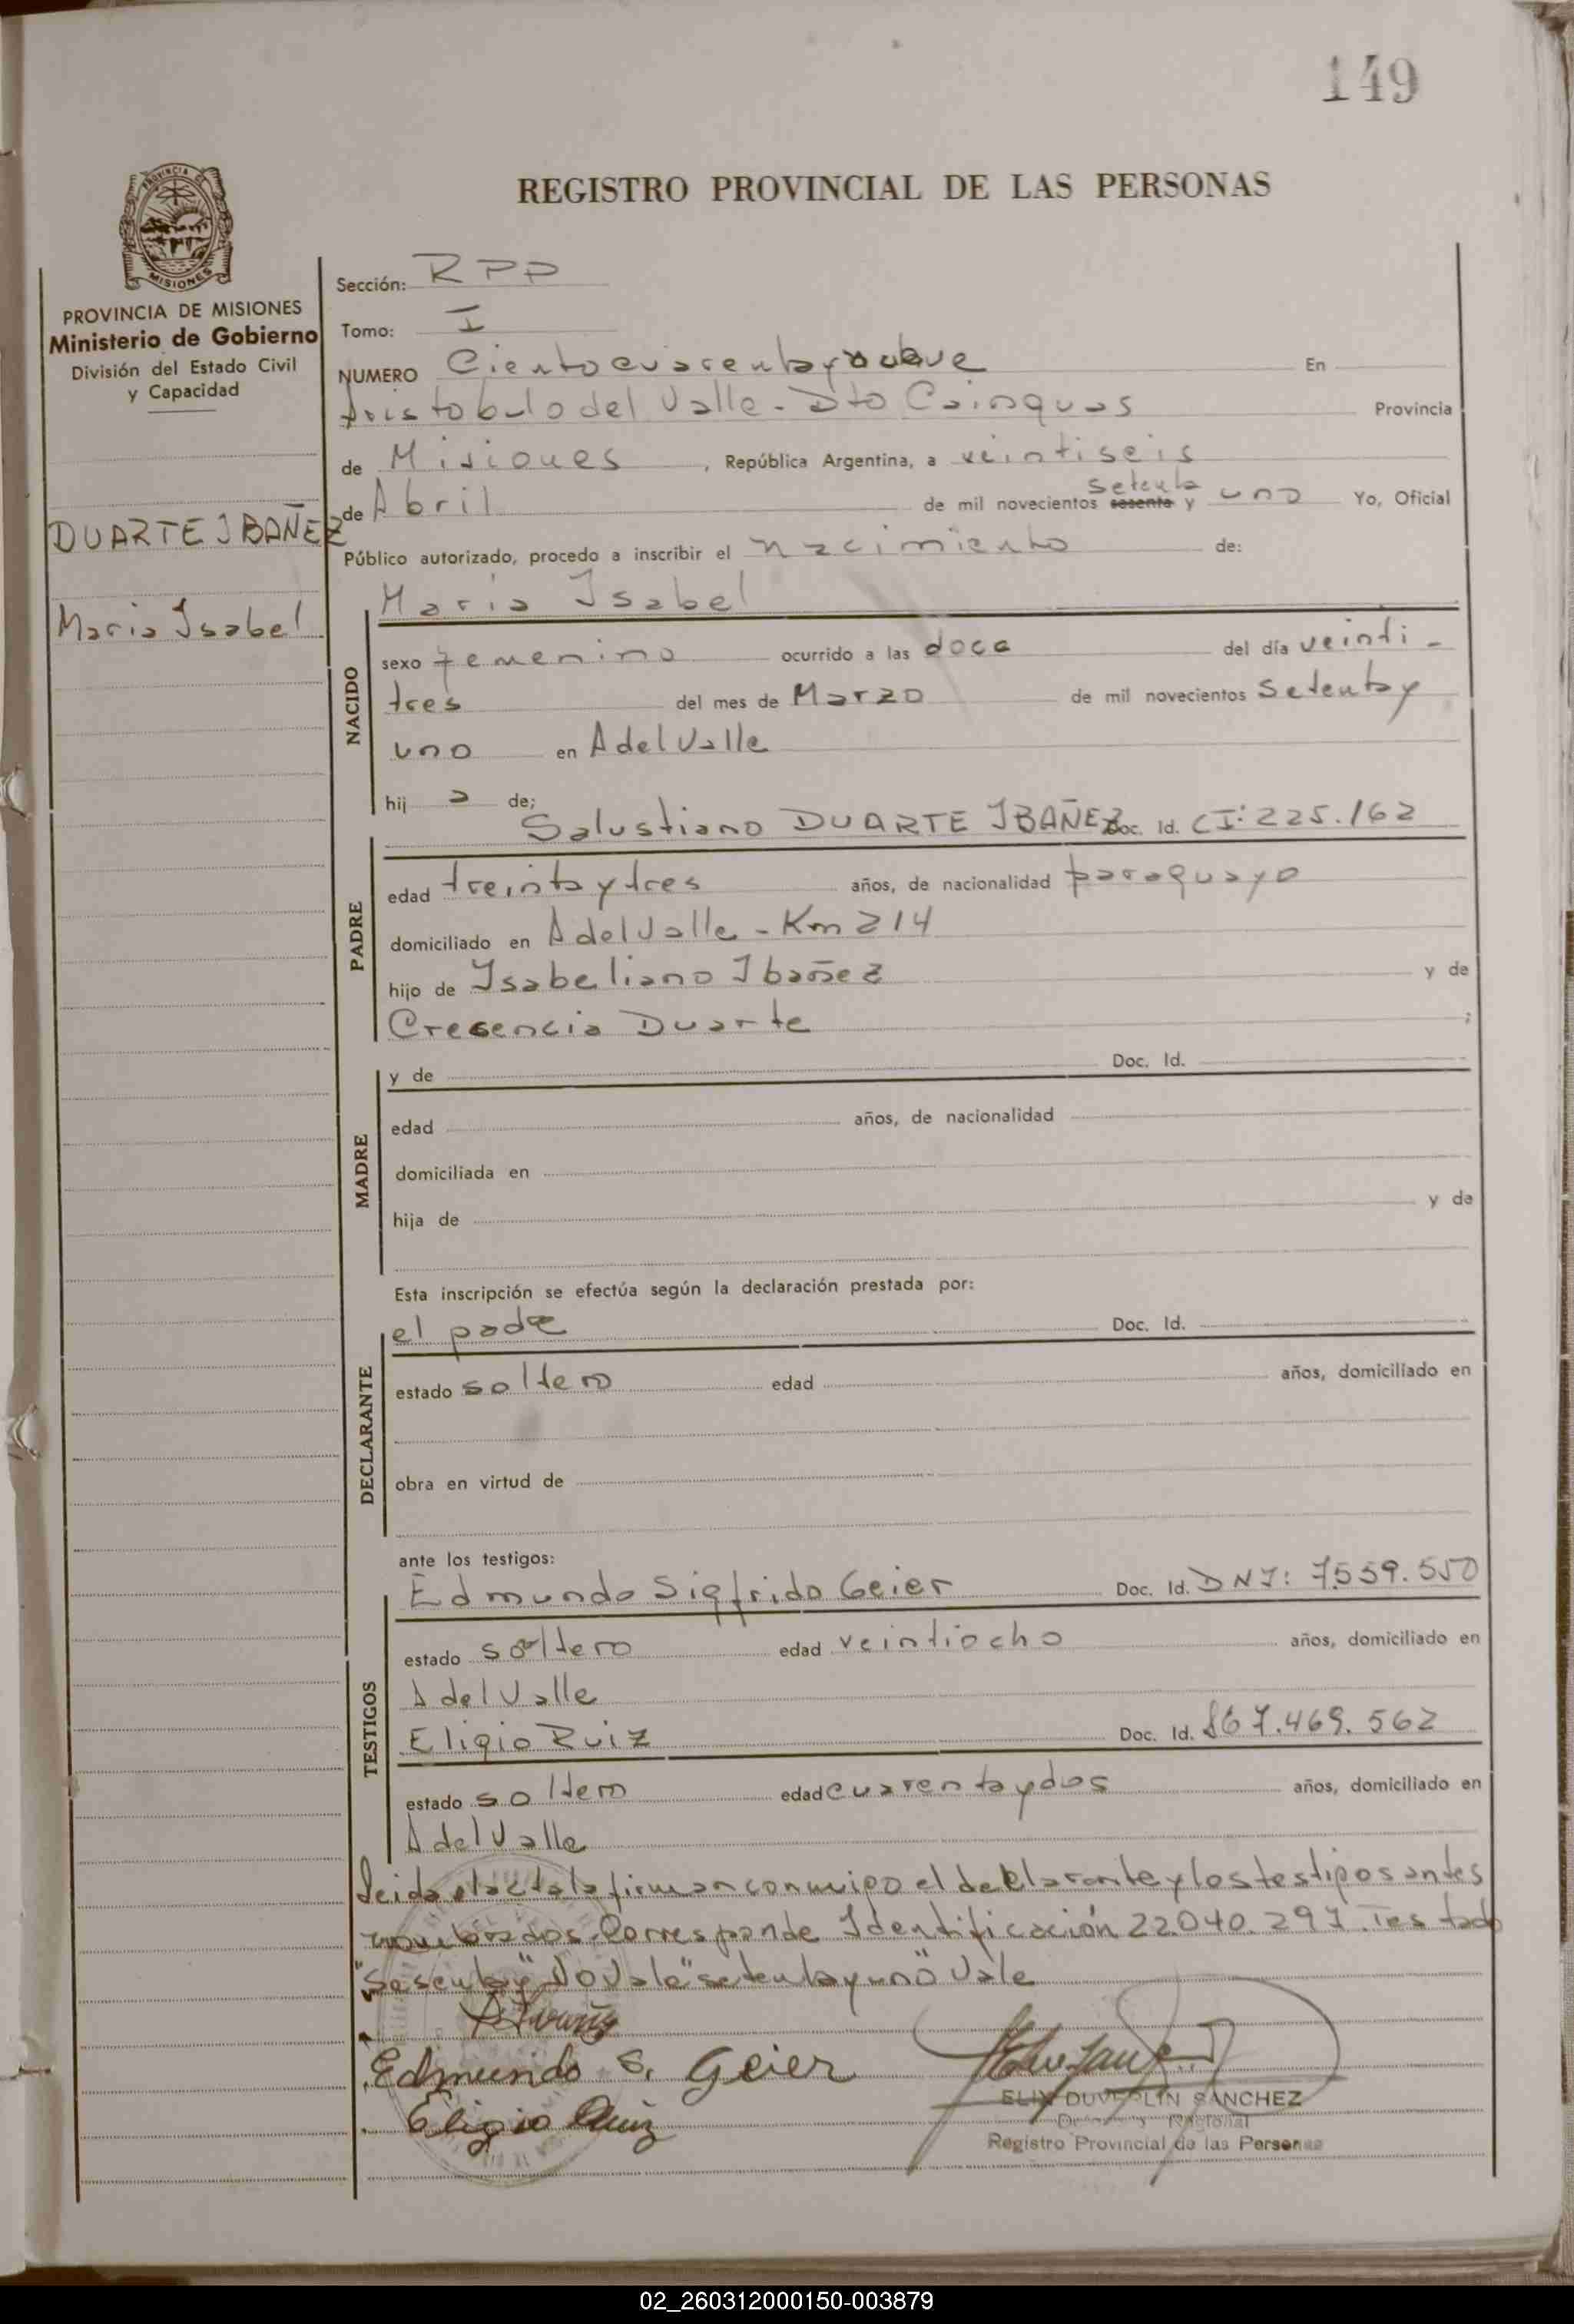 149
REGISTRO PROVINCIAL DE LAS PERSONAS
MISIONES
PROVINCIA DE MISIONES
Ministerio de Gobierno
División del Estado Civil
y Capacidad
DUARTE IBAÑEZ
Maria Isabel
Sección: RPP
Tomo: I
NUMERO Ciento cuarenta y nueve En
Aristobulo del Valle - Dto Cainguas Provincia
de Misiones, República Argentina, a veintiseis
de Abril de mil novecientos sesenta setenta y uno Yo, Oficial
Público autorizado, procedo a inscribir el nacimiento de:
Maria Isabel
NACIDO
sexo femenino ocurrido a las doce del día veinti-
tres del mes de Marzo de mil novecientos setenta y
uno en A del Valle
hij a de;
Salustiano DUARTE IBAÑEZ Doc. Id. CI: 225.162
PADRE
edad treinta y tres años, de nacionalidad paraguayo
domiciliado en A del Valle - Km 214
hijo de Isabeliano Ibañez y de
Cresencia Duarte ;
MADRE
y de Doc. Id.
edad años, de nacionalidad
domiciliada en
hija de y de
Esta inscripción se efectúa según la declaración prestada por:
DECLARANTE
el padre Doc. Id.
estado soltero edad años, domiciliado en
obra en virtud de
ante los testigos:
TESTIGOS
Edmundo Sigfrido Geier Doc. Id. DNI: 7.559.550
estado soltero edad veintiocho años, domiciliado en
A del Valle
Eligio Ruiz Doc. Id. 7.469.562
estado soltero edad cuarenta y dos años, domiciliado en
A del Valle
Leida el acta la firman conmigo el declarante y los testigos antes
nombrados. Corresponde Identificación 22.040.297. Testado
"Sesenta y" No Vale "setenta y uno" Vale
Edmundo S. Geier
Eligio Ruiz
ELIX DUVERLIN SANCHEZ
Registro Provincial de las Personas
02_260312000150-003879